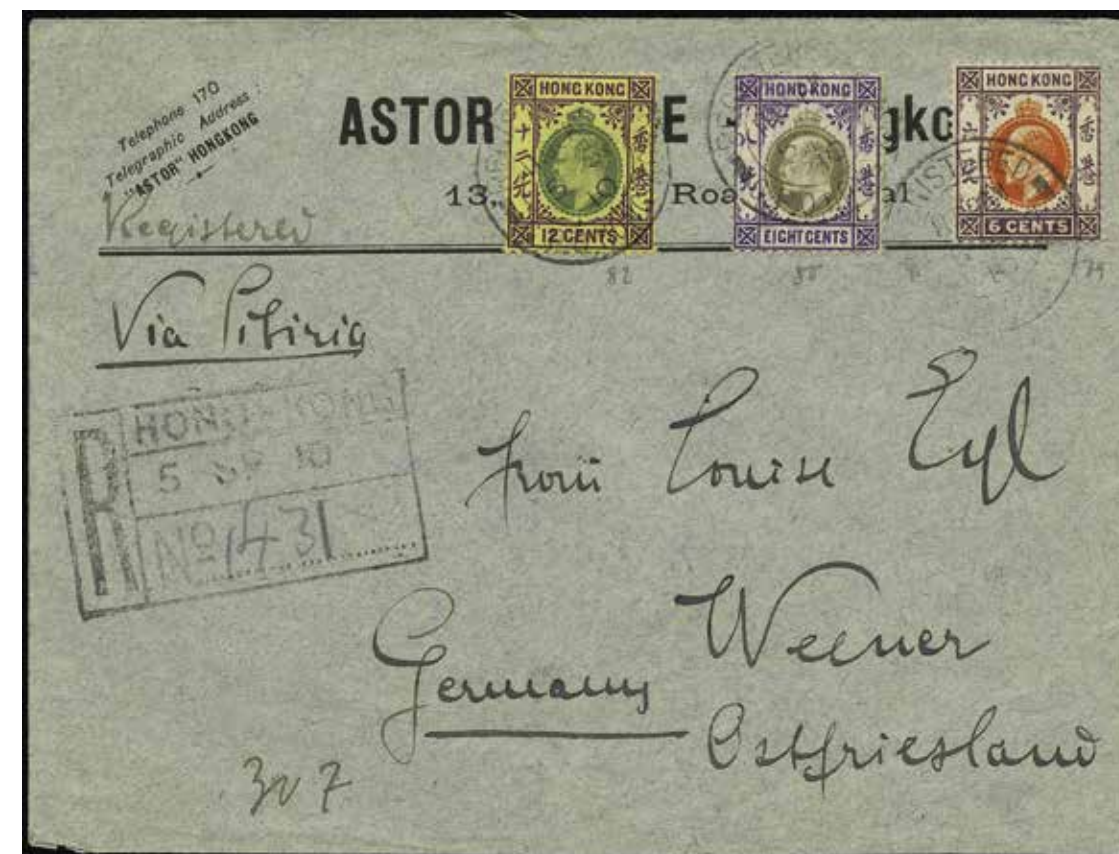 Telephone 170
Telegraphic Address:
"ASTOR" HONGKONG
ASTOR E gkc
13, Roa al
HONG KONG
十二先
香港
12 CENTS
HONG KONG
香港
EIGHT CENTS
HONG KONG
香港
6 CENTS
Registered
82 80 79
Via Sibiria
R
HONG KONG
5 SP 10
No 1431
Frau Louise Eyl
Weener
Germany
Ostfriesland
307